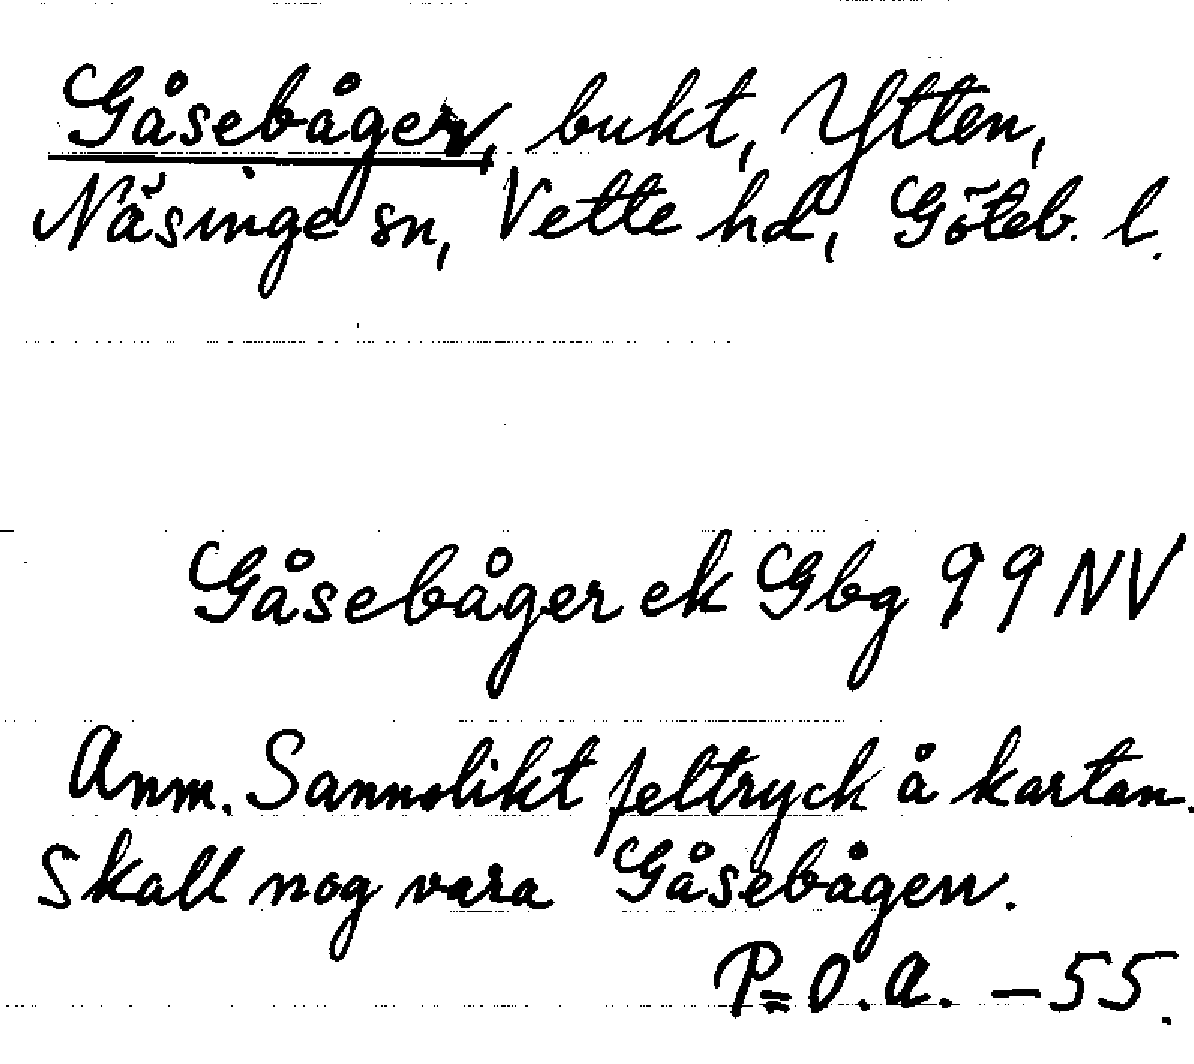 Gåsebågen, bukt, Ytten,
Näsinge sn, Vette hd, Göteb. l.
Gåsebåger ek Gbg 99 NV
Anm. Sannolikt feltryck å kartan.
Skall nog vara Gåsebågen.
P=O.A. – 55.